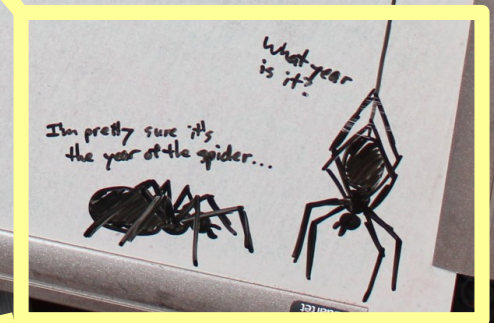 What year
is it?
I'm pretty sure it's
the year of the spider...